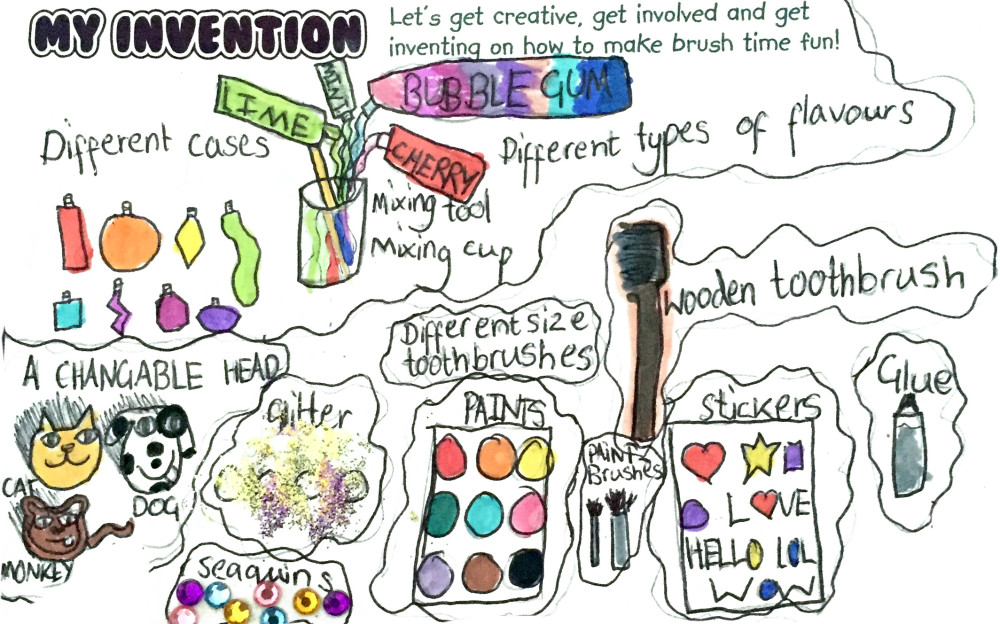 MY INVENTION
Let's get creative, get involved and get
inventing on how to make brush time fun!
LIME
MINT
BUBBLE GUM
CHERRY
Different cases
Different types of flavours
Mixing tool
Mixing cup
wooden toothbrush
Different size
toothbrushes
A CHANGABLE HEAD
CAT
DOG
MONKEY
glitter
seaquins
PAINTS
PAINT
Brushes
stickers
LOVE
HELLO LOL
WOW
Glue